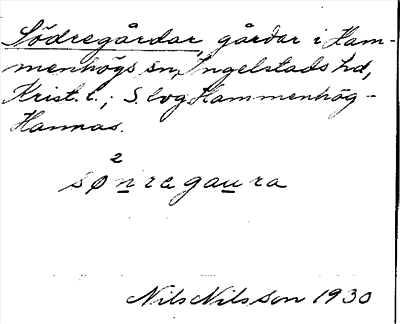 Södregårdar, gårdar i Ham-
menhögs sn, Ingelstads hd,
Krist. l.; S. log Hammenhög -
Hannas.
2
søn̲ragau̲ra
Nils Nilsson 1930